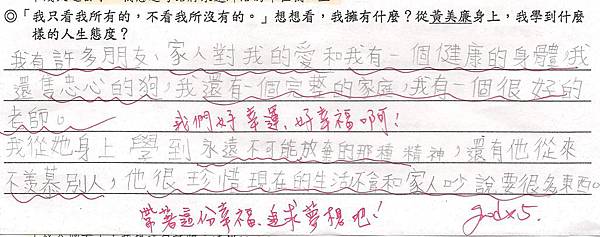 ◎「我只看我所有的，不看我所沒有的。」想想看，我擁有什麼？從黃美廉身上，我學到什麼
樣的人生態度？
我有許多朋友、家人對我的愛和我有一個健康的身體，我
還有忠心的狗，我還有一個完整的家庭，我有一個很好的
老師。
我們好幸運、好幸福啊！
我從她身上學到永遠不可能放棄的那種精神，還有他從來
不羨慕別人，他很珍惜現在的生活不會和家人吵說要很多東西。
帶著這份幸福、追求夢想吧！
good×5.